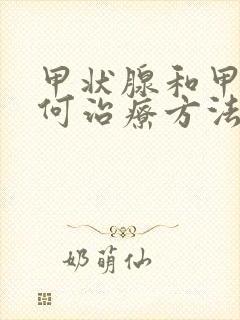 甲状腺和甲
何治療方法
奶萌仙